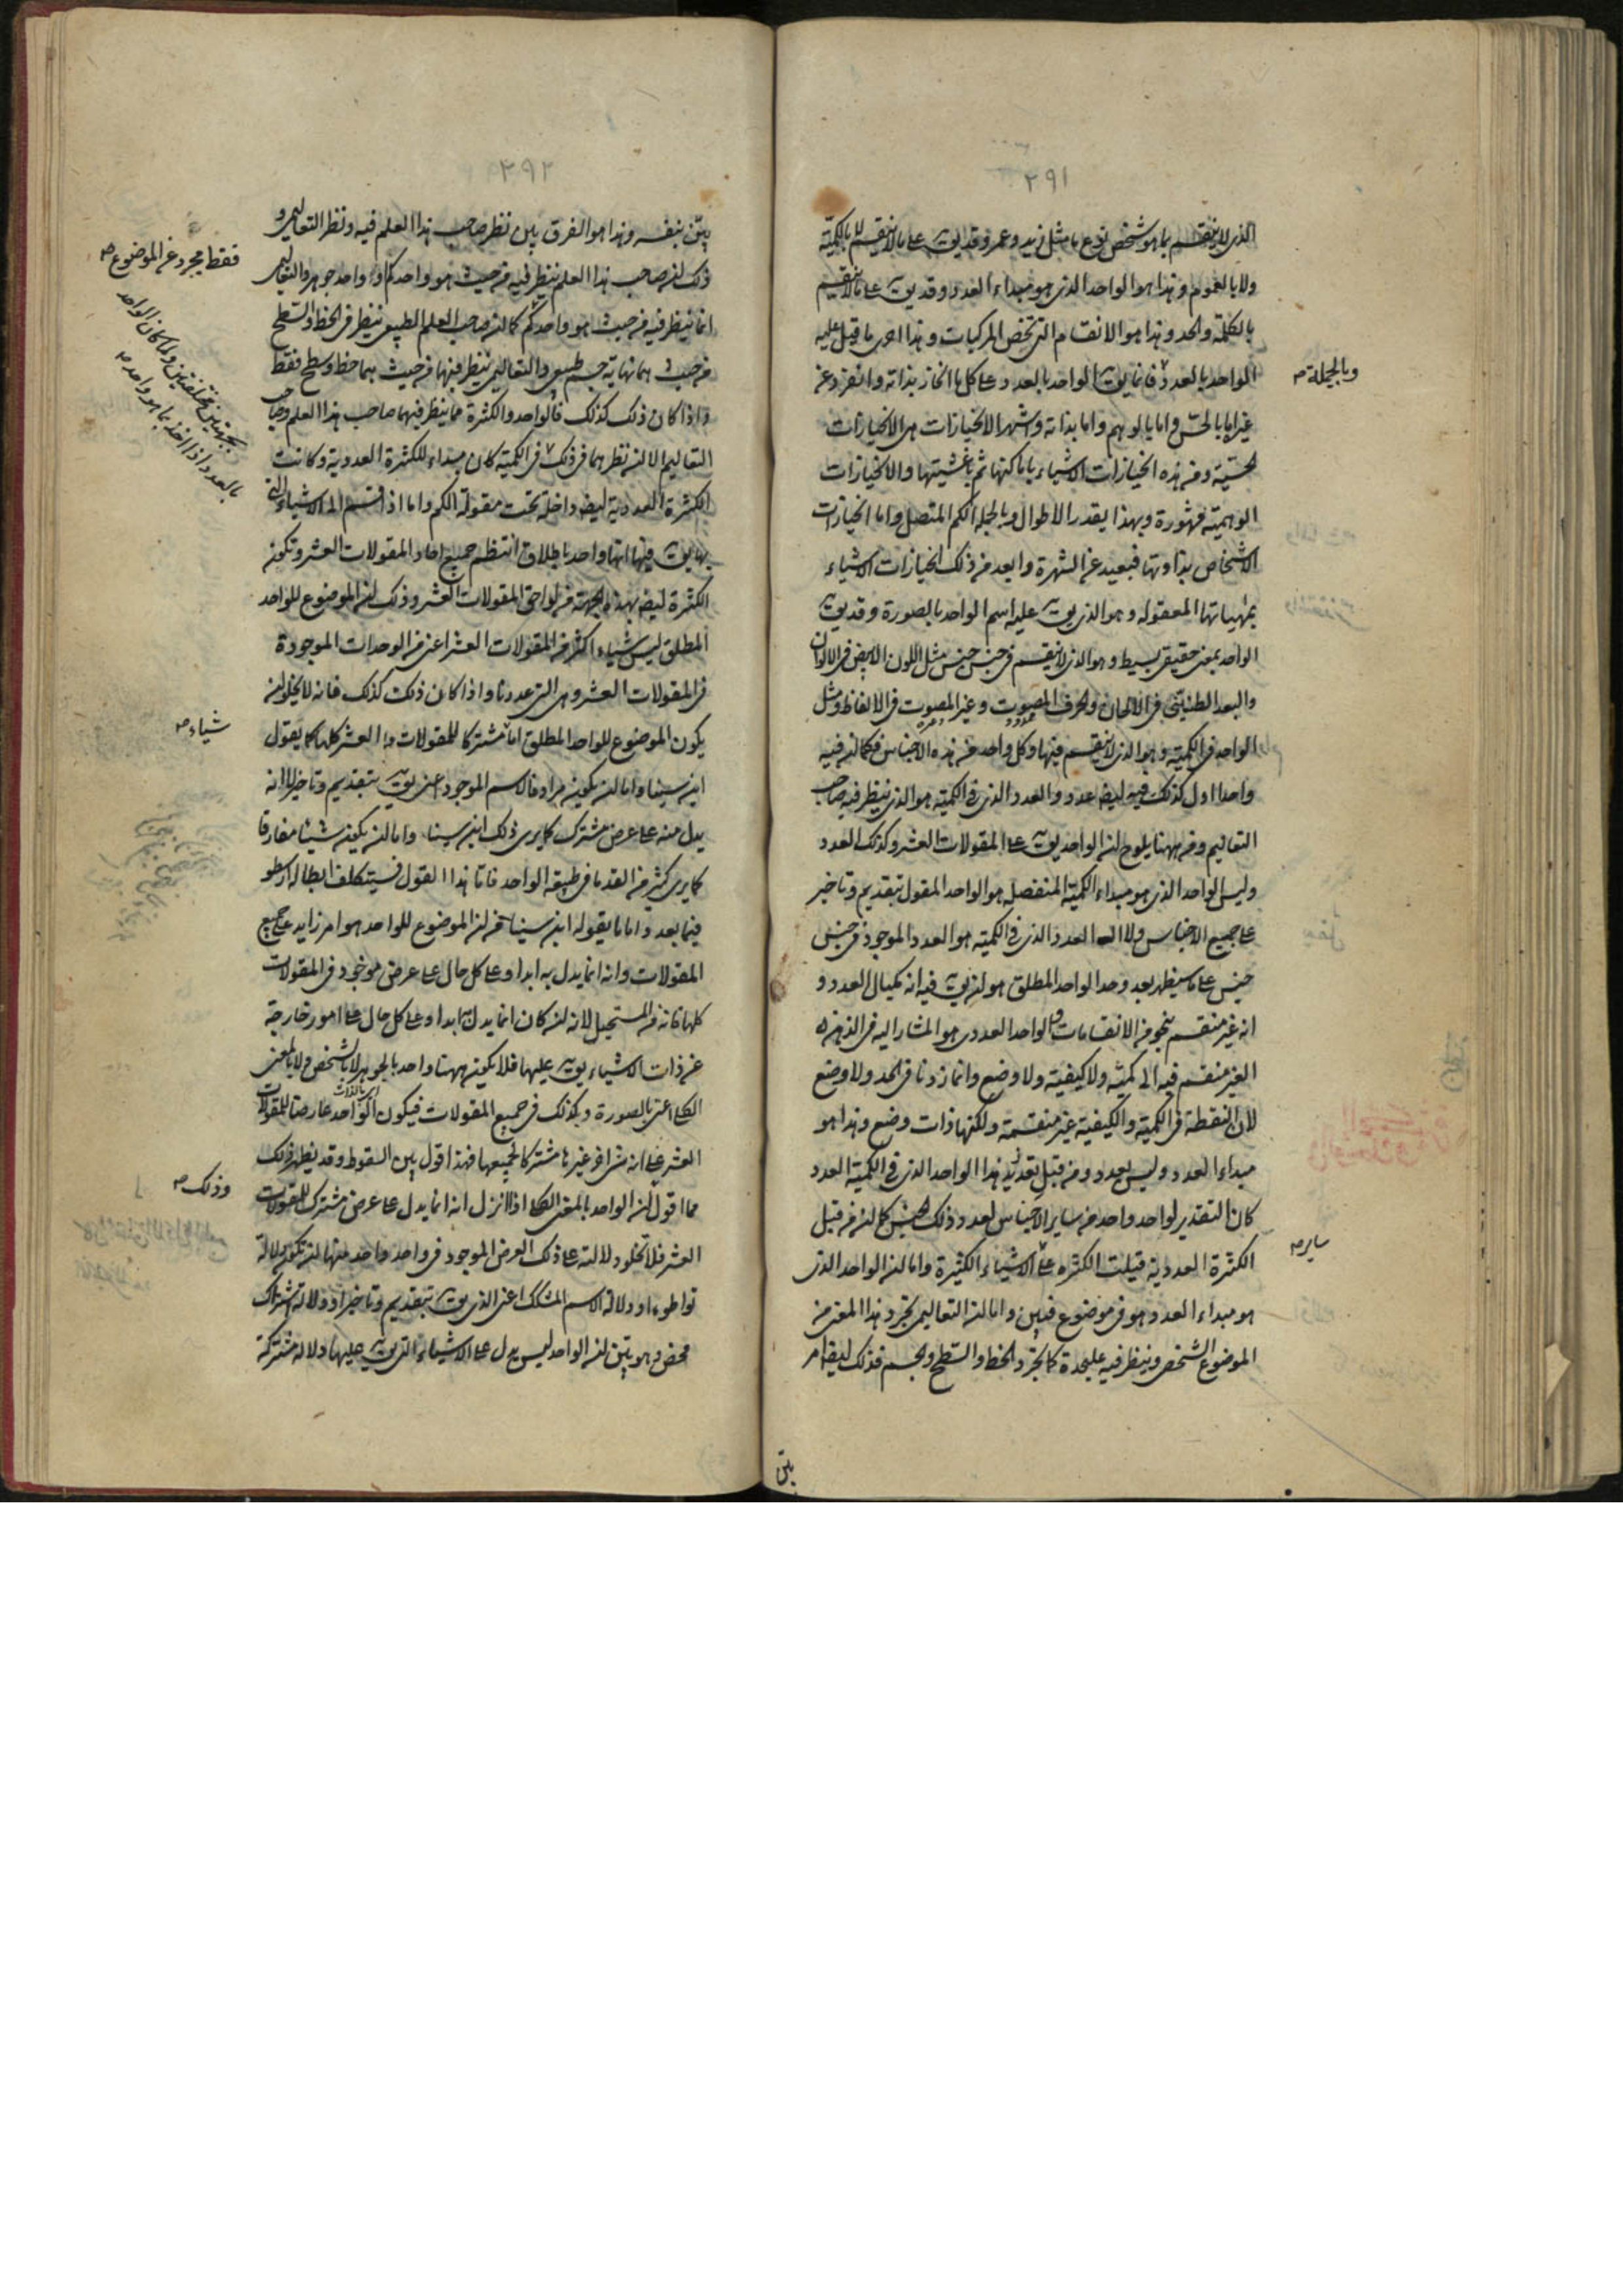 ٢٩١
الذى لا ينقسم بما هو شخص نوع ما مثل زيد وعمرو وقد يق على ما لا ينقسم لا بالكمية
ولا بالعموم وهذا هو الواحد الذى هو مبداء العدد وقد يق على ما لا ينقسم
بالكلمة والحد وهذا هو الانقسام التى تخص المركبات وهذا احرى ما قيل عليه
الواحد بالعدد فانما يق الواحد بالعدد على كل ما انحاز بذاته وانفرد عن
وبالجملة صح
غيره اما بالحس واما بالوهم واما بذاته واشهر الانحيازات هى الانحيازات
الحسية ومن هذه انحيازات الاشياء باماكنها ثم باغشيتها والانحيازات
الوهمية مشهورة وبهذا يقدر الاطوال وبالجملة الكم المتصل واما انحيازات
الاشخاص بذاوتها فبعيد عن الشهرة وابعد من ذلك انحيازات الاشياء
بمهياتها المعقوله وهو الذى يق عليه اسم الواحد بالصورة وقد يق
الواحد بمعنى حقيقى بسيط وهو الذى لا ينقسم فى جنس جنس مثل اللون الابيض فى الالوان
والبعد الطنينى فى الالحان والحرف المصوت وغير المصوت فى الالفاظ ومثل
الواحد فى الكمية وهو الذى لا ينقسم فيها وكل واحد من هذه الاجناس فكما انه فيه
واحدا اول كذلك فيه ايضا عدد والعدد الذى فى الكمية هو الذى ينظر فيه صاحب
التعاليم ومن ههنا يلوح ان الواحد يق على المقولات العشر وكذلك العدد
وليس الواحد الذى هو مبداء الكمية المنفصلة هو الواحد المقول بتقديم وتاخير
على جميع الاجناس ولا العدد الذى فى الكمية هو العدد الموجود فى جنس
جنس على ما سيظهر بعد وحد الواحد المطلق هو ان يق فيه انه مكيال العدد و
انه غير منقسم بنحو من الانقسامات والواحد العددى هو المشار اليه فى الذهن
الغير منقسم فيه الى كمية ولا كيفية ولا وضع وانما زدنا فى الحد ولا وضع
لان النقطة فى الكمية والكيفية غير منقسمة ولكنها ذات وضع وهذا هو
مبداء العدد وليس بعدد ومن قبل تقدير هذا الواحد الذى فى الكمية العدد
كان التقدير لواحد واحد من ساير الاجناس لعدد ذلك الجنس كما انه من قبل
ساير صح
الكثرة العددية قيلت الكثرة على الاشياء الكثيرة واما ان الواحد الذى
هو مبداء العدد هو فى موضوع فبين واما ان التعاليمى يجرد هذا المعنى من
الموضوع الشخص وينظر فيه على حدة كما يجرد الخط والسطح والجسم فذلك ايضا امر
بين
٢٩٢
بين بنفسه وهذا هو الفرق بين نظر صاحب هذا العلم فيه ونظر التعاليمى و
فقط مجرد عن الموضوع صح
ذلك ان صاحب هذا العلم ينظر فيه من حيث هو واحد كم او واحد جوهر والتعاليمى
انما ينظر فيه من حيث هو واحد كم كما ان صاحب العلم الطبيعى ينظر فى الخط والسطح
من حيث هما نهاية جسم طبيعى والتعاليمى ينظر فيهما من حيث هما خط وسطح فقط
واذا كان ذلك كذلك فالواحد والكثرة مما ينظر فيهما صاحب هذا العلم وصاحب
بجهتين مختلفتين ولما كان الواحد
بالعدد اذا اخذ بما هو واحد صح
التعاليم الا ان نظرهما فى ذلك فى الكمية كان مبداء للكثرة العددية وكانت
الكثرة العددية ايضا داخلة تحت مقولة الكم واما اذا قسم الى الاشياء التى
بها يق فيها انها واحد باطلاق انتظم جميع احاد المقولات العشر وتكون
الكثرة ايضا بهذه الجهة من لواحق المقولات العشر وذلك ان الموضوع للواحد
المطلق ليس شياء اكثر من المقولات العشر اعنى من الوحدات الموجودة
فى المقولات العشر وهى التى عددنا واذا كان ذلك كذلك فانه لا يخلو من ان
يكون الموضوع للواحد المطلق اما مشتركا للمقولات العشر كلها كما يقول
شياء صح
ابن سينا واما ان يكون مرادفا لاسم الموجود اعنى يق بتقديم وتاخير لا انه
يدل منه على عرض مشترك كما يرى ذلك ابن سينا واما ان يكون شيئا مفارقا
كما يرى كثير من القدما فى طبيعة الواحد فاما هذا القول فسيتكلف ابطاله ارسطو
فيما بعد واما ما يقوله ابن سينا من ان الموضوع للواحد هو امر زايد على جميع
المقولات وانه انما يدل به ابدا وعلى كل حال على عرض موجود فى المقولات
كلها فانه من المستحيل لانه لو كان انما يدل به ابدا وعلى كل حال على امور خارجة
عن ذات الاشياء يق عليها فلا يكون ههنا واحد بالجوهر لا بالشخص ولا بالمعنى
الكلى اعنى بالصورة وكذلك فى جميع المقولات فيكون الواحد عارضا للمقولات
اى بالذات
مما اقول ان الواحد بالمعنى الكلى اذا انزل انه انما يدل على عرض مشترك للمقولات
وذلك صح
العشر فلا تخلو دلالته على ذلك العرض الموجود فى واحد واحد منها ان تكون دلالة
تواطوء او دلالة الاسم المشكك اعنى الذى يق بتقديم وتاخير او دلالة اشتراك
محض وهو بين ان الواحد ليس يدل على الاشياء التى يق عليها دلالة مشتركة